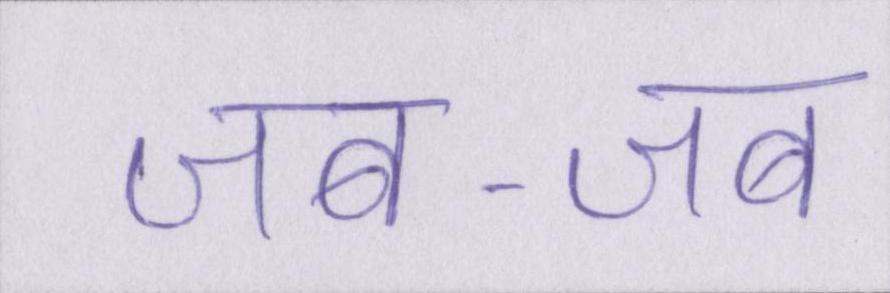 जब-जब